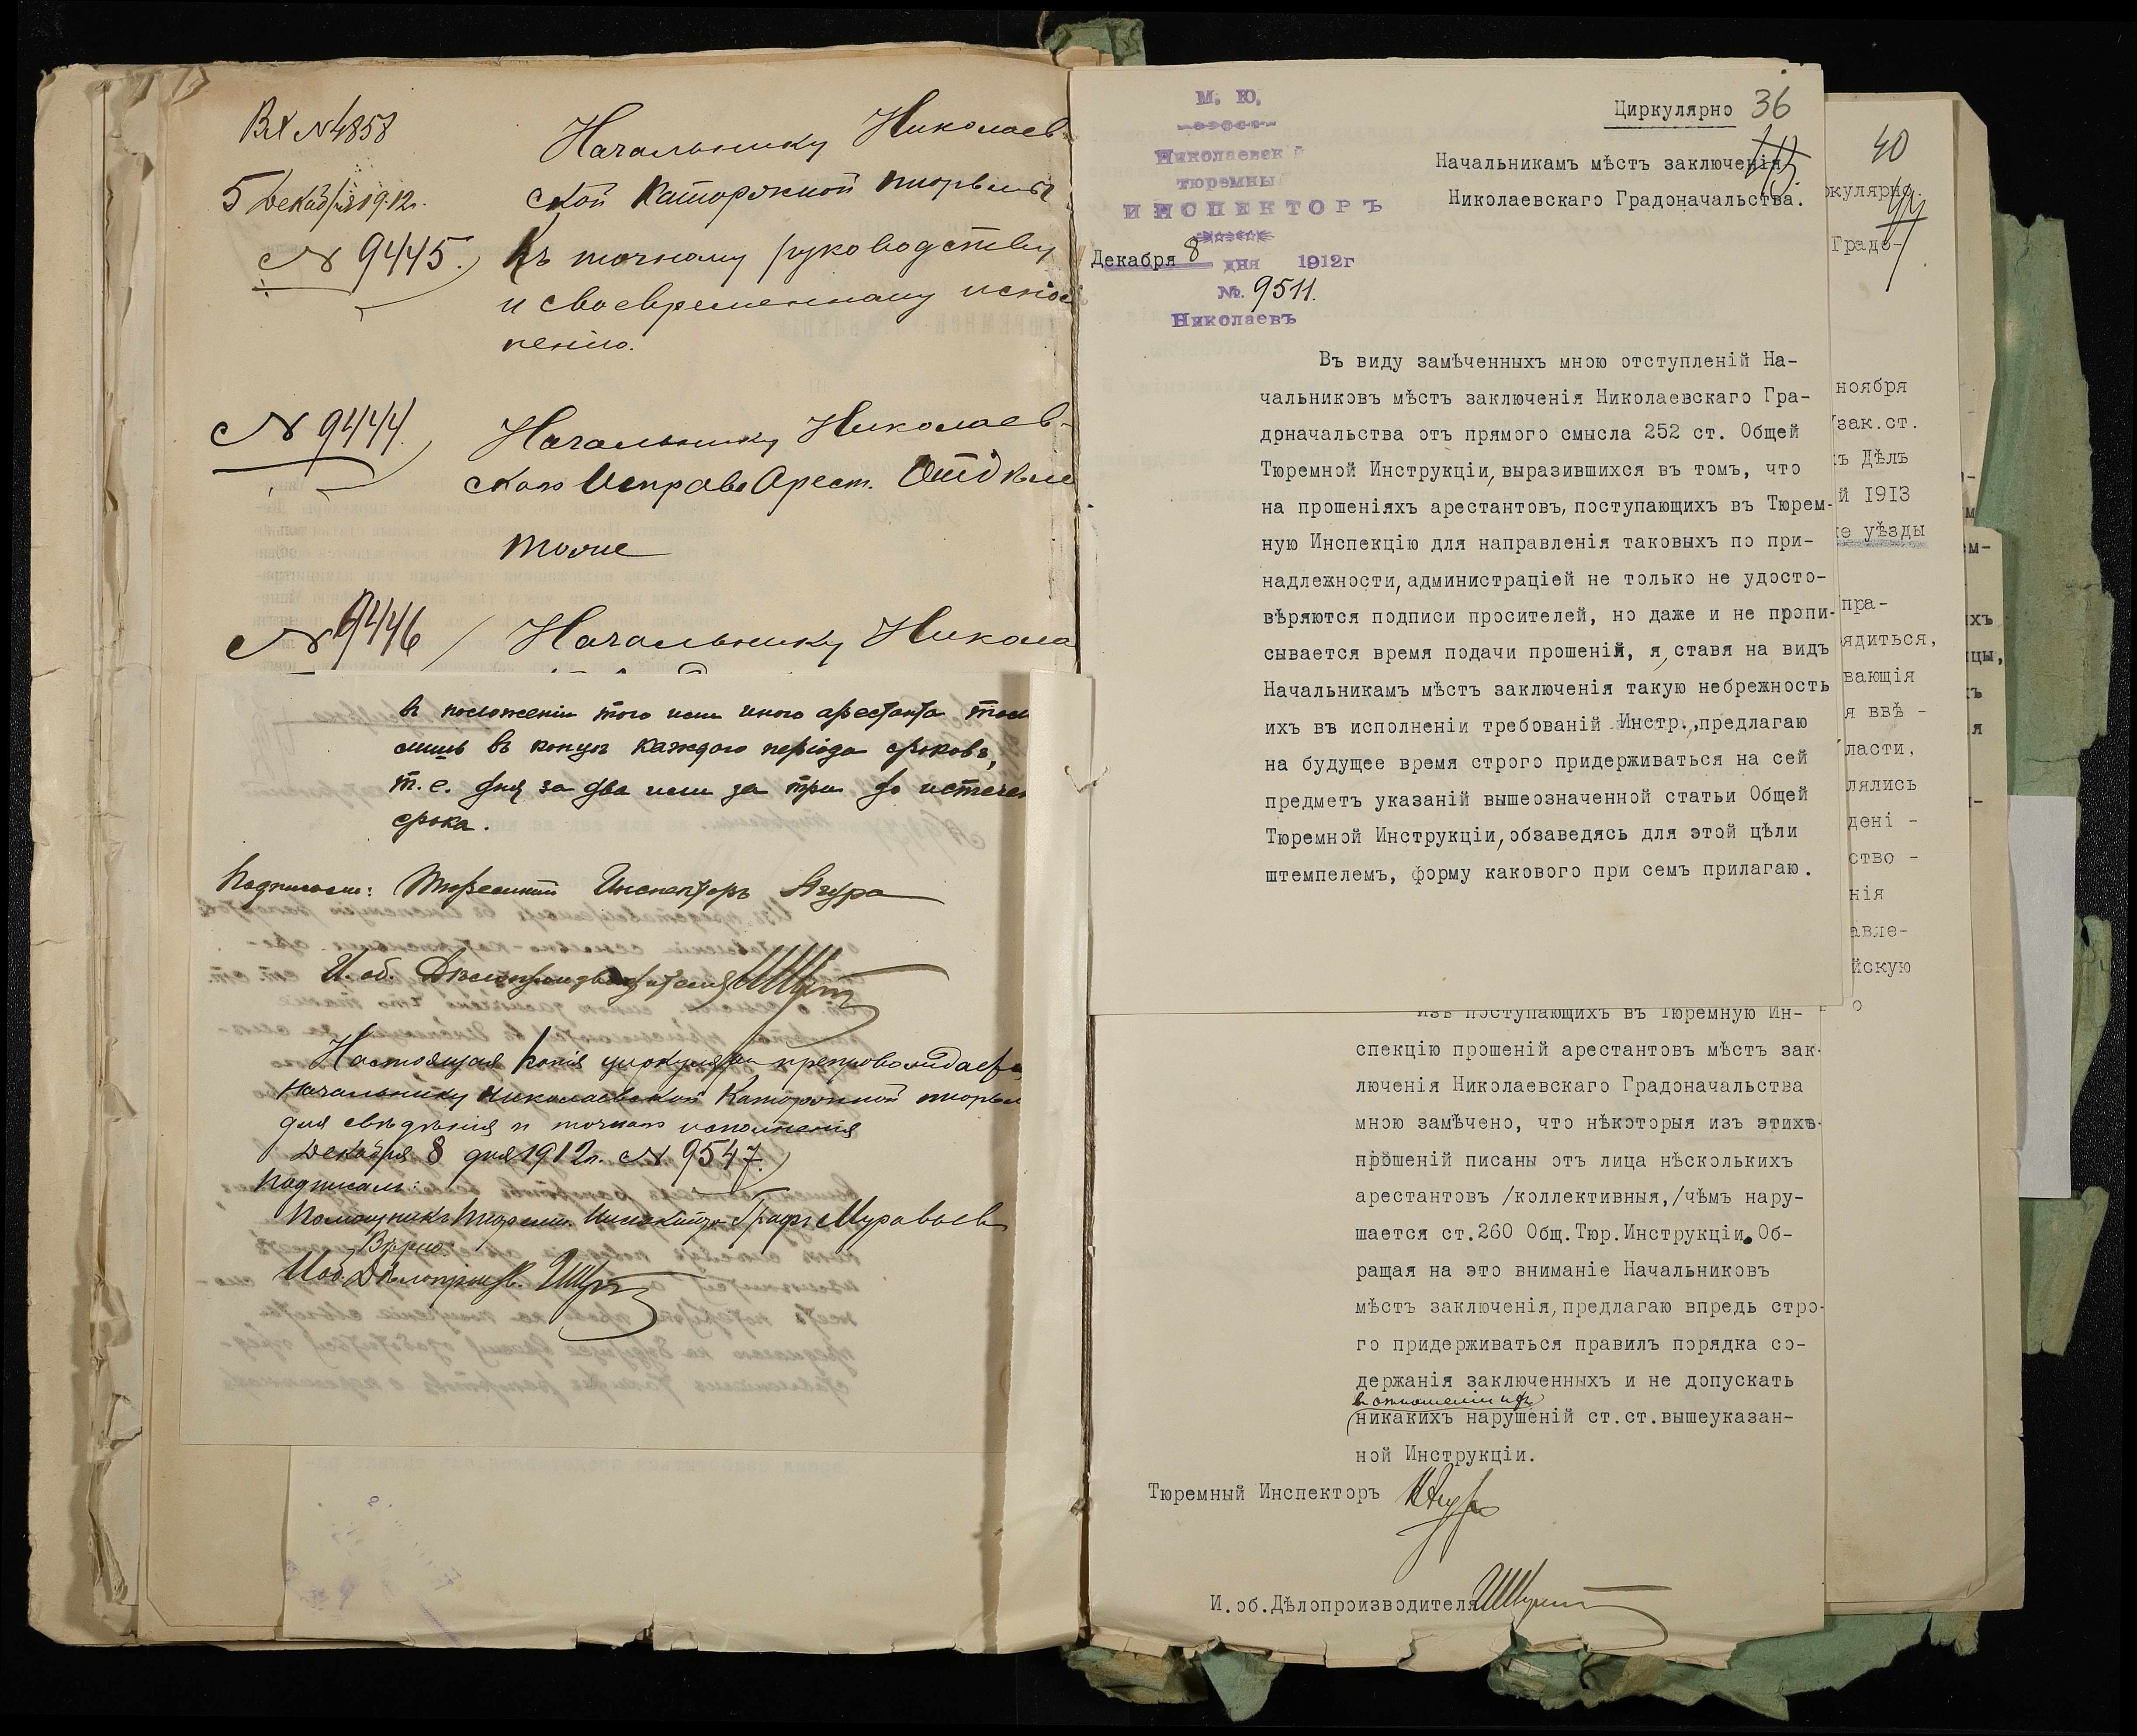 Вх N 4858
5 Декабря 1912 г.
Начальнику Николаев-
ской Каторжной тюрьмы
N 9445.
Къ точному руководству
и своевременному испол
ненію.
N 9444.
Начальнику Николаев-
скаго Исправ. Арест. Отдѣле
тоже
N 9446
Начальнику Никола
въ положеніи того или иного арестанта
лишь въ концѣ каждаго періода сроковъ,
т. е. дня за два или за три до истечен
срока.
Подписали: Тюремный Инспекторъ Ягура
И. об. Дѣлопроизводителя
Настоящая копія циркуляра препровождается
Начальнику Николаевской Каторжной тюрьм
для свѣдѣнія и точнаго исполненія
Декабря 8 дня 1912 г. N 9547.
Подписалъ:
Помощникъ Тюремн. Инспектора Графъ Муравьевъ
Вѣрно:
И об. Дѣлопроизв.
М. Ю.
Николаевскій
тюремный
ИНСПЕКТОРЪ
Декабря 8 дня 1912г
№. 9511.
Николаевъ
Циркулярно 36
Начальникамъ мѣстъ заключенія
Николаевскаго Градоначальства.
Въ виду замѣченныхъ мною отступленій На-
чальниковъ мѣстъ заключенія Николаевскаго Гра-
доначальства отъ прямого смысла 252 ст. Общей
Тюремной Инструкціи, выразившихся въ томъ, что
на прошеніяхъ арестантовъ, поступающихъ въ Тюрем-
ную Инспекцію для направленія таковыхъ по при-
надлежности, администраціей не только не удосто-
вѣряются подписи просителей, но даже и не пропи-
сывается время подачи прошеній, я, ставя на видъ
Начальникамъ мѣстъ заключенія такую небрежность
ихъ въ исполненіи требованій Инстр., предлагаю
на будущее время строго придерживаться на сей
предметъ указаній вышеозначенной статьи Общей
Тюремной Инструкціи, обзаведясь для этой цѣли
штемпелемъ, форму какового при семъ прилагаю.
Изъ поступающихъ въ Тюремную Ин-
спекцію прошеній арестантовъ мѣстъ зак-
люченія Николаевскаго Градоначальства
мною замѣчено, что нѣкоторыя изъ этихъ
прошеній писаны отъ лица нѣсколькихъ
арестантовъ /коллективныя,/чѣмъ нару-
шается ст.260 Общ.Тюр.Инструкціи. Об-
ращая на это вниманіе Начальниковъ
мѣстъ заключенія, предлагаю впредь стро-
го придерживаться правилъ порядка со-
держанія заключенныхъ и не допускать
въ отношеніи ихъ
никакихъ нарушеній ст.ст.вышеуказан-
ной Инструкціи.
Тюремный Инспекторъ
И.об.Дѣлопроизводителя
40
ркулярно.
Градо-
ноября
зак.ст.
ъ Дѣлъ
й 1913
е уѣзды
пра-
ядиться,
вающія
я ввѣ -
ласти,
лялись
дені -
ство -
нія
авле-
йскую
о